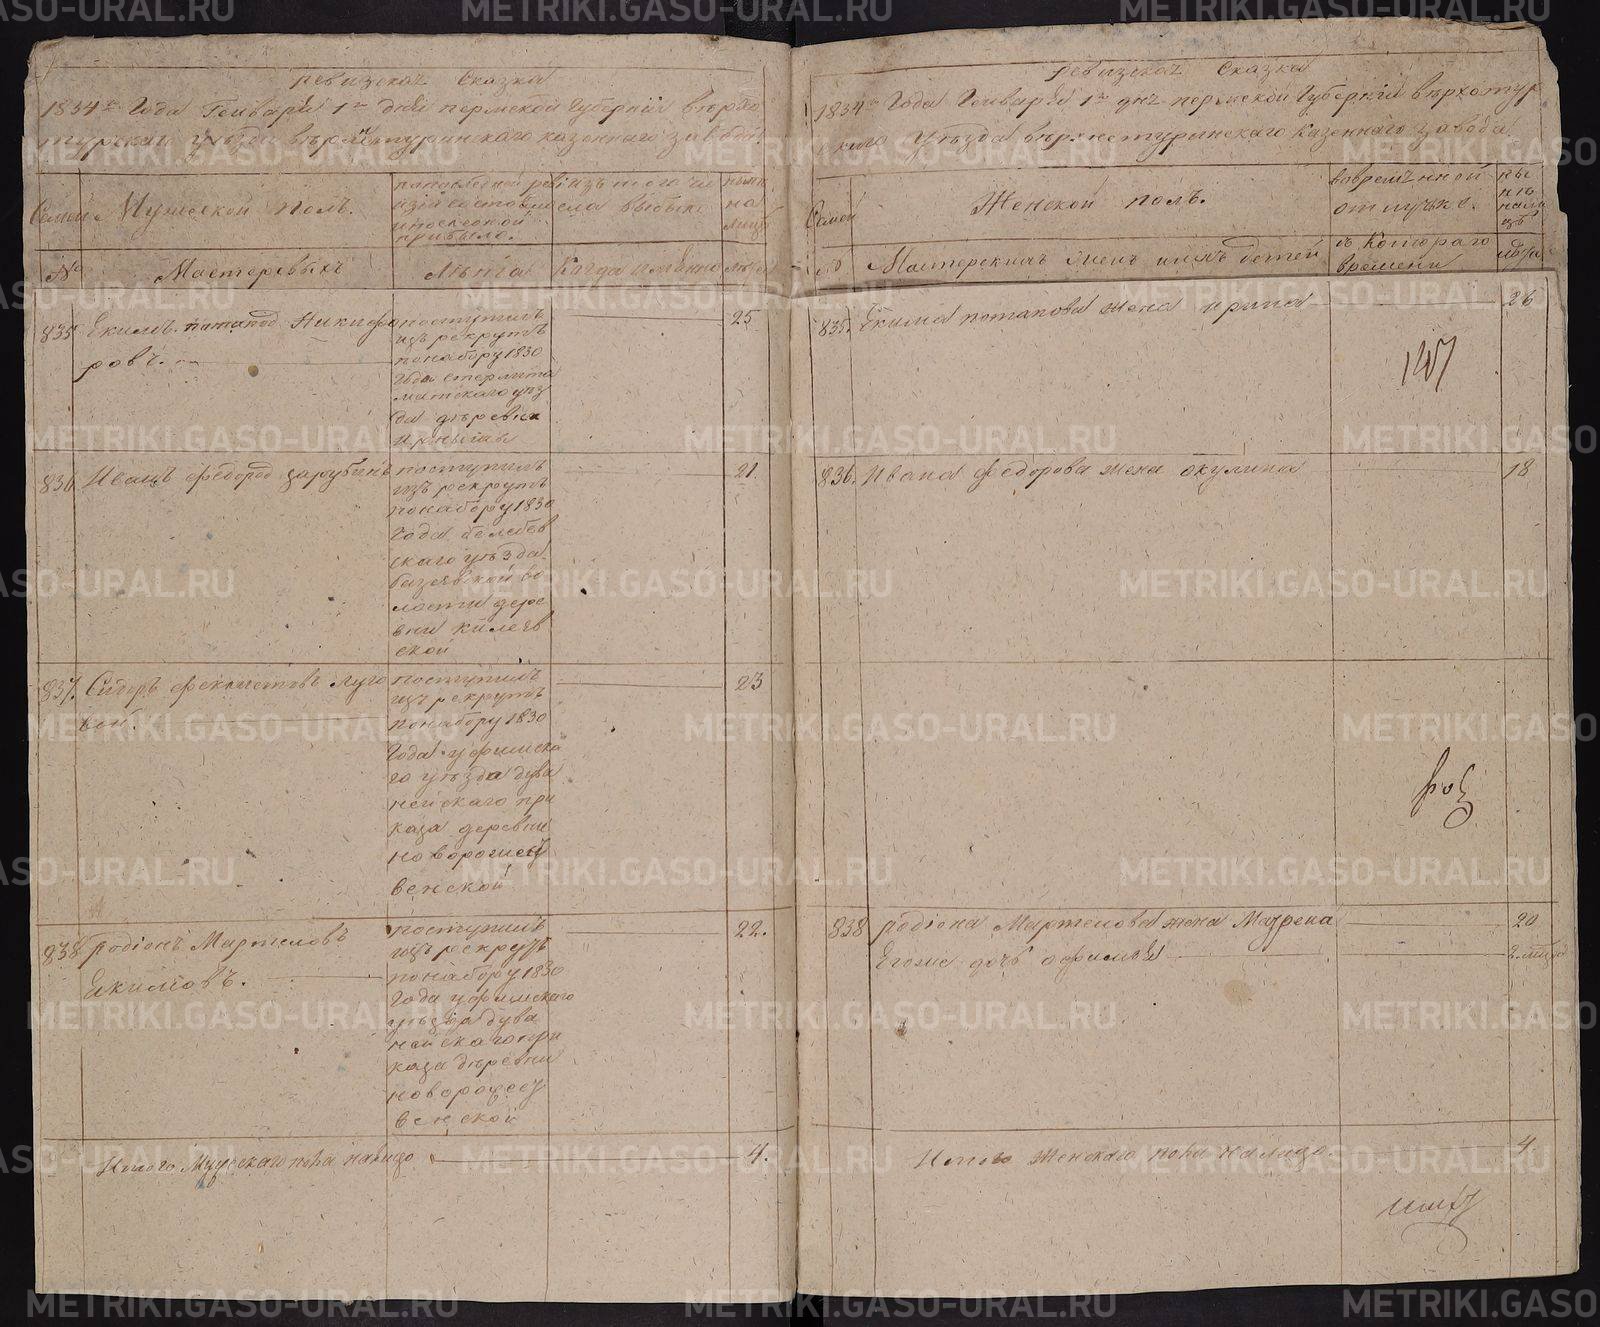 ревизская Сказка
1834го Года Генваря 1го дня пермской Губернiи верхо
турскаго уѣзда верхнетуринскаго казеннаго завода
Семьи
Мужеской полъ.
по последней ревизiи
состояло
и после оной
прибыло.
изъ того чи
сла выбыло
ныне
на
лицо
№
Мастеровыхъ
Лѣта
Когда имянно
лѣта
835
Екимъ потапов Никифо
ровъ.
поступилъ
изъ рекрутъ
понабору 1830
Года стерлита
матскаго уѣз
да деревни
25
836
Иванъ федоров зарубинъ
поступилъ
изъ рекрутъ
понабору 1830
Года белебев
скаго уѣзда
базевской во
лости дере
вни килеев
ской
21
837.
Сидоръ феклистовъ луго
вои.
поступилъ
изъ рекрутъ
понабору 1830
Года уфимска
го уѣзда дува
нейскаго при
каза деревни
новорошеи
венской
23
838
родiонъ Мартемовъ
Екимовъ.
поступилъ
изъ рекрутъ
понабору 1830
Года уфимскаго
уѣзда дува
нейскаго при
каза деревни
венской
22.
Итого Мужескаго пола налицо
4.
ревизская Сказка
1834го Года Генваря 1го дня пермской Губернiи верхотур
скаго Уѣзда верхнетуринскаго казеннаго завода
Семьи
Женской полъ.
вовременной
отлучке.
ны
не
нали
цѣ
№
Мастерскихъ жен ихъ детей
съ Котораго
времени
лѣта
835.
Екима потапова жена ирина
26
836.
Ивана федорова жена окулина
18
838
родiона Мартемова жена Маурена
20
Егоже дочь офимья
Итого женскаго пола налицо
4.